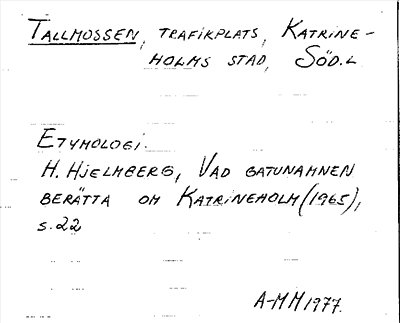 TALLMOSSEN, TRAFIKPLATS, KATRINE-
HOLMS STAD, SÖD.L
ETYMOLOGI.
H. HJELMBERG, VAD GATUNAMNEN
BERÄTTA OM KATRINEHOLM (1965),
s. 22
A-MM 1977.